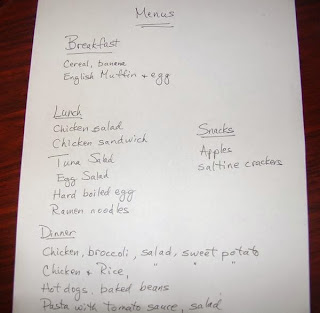 Menus
Breakfast
Cereal, banana
English Muffin + egg
Lunch
Chicken salad
Chicken sandwich
Tuna Salad
Egg Salad
Hard boiled egg
Ramen noodles
Snacks
Apples
saltine crackers
Dinner
Chicken, broccoli, salad, sweet potato
Chicken & Rice, " " "
Hot dogs, baked beans
Pasta with tomato sauce, salad